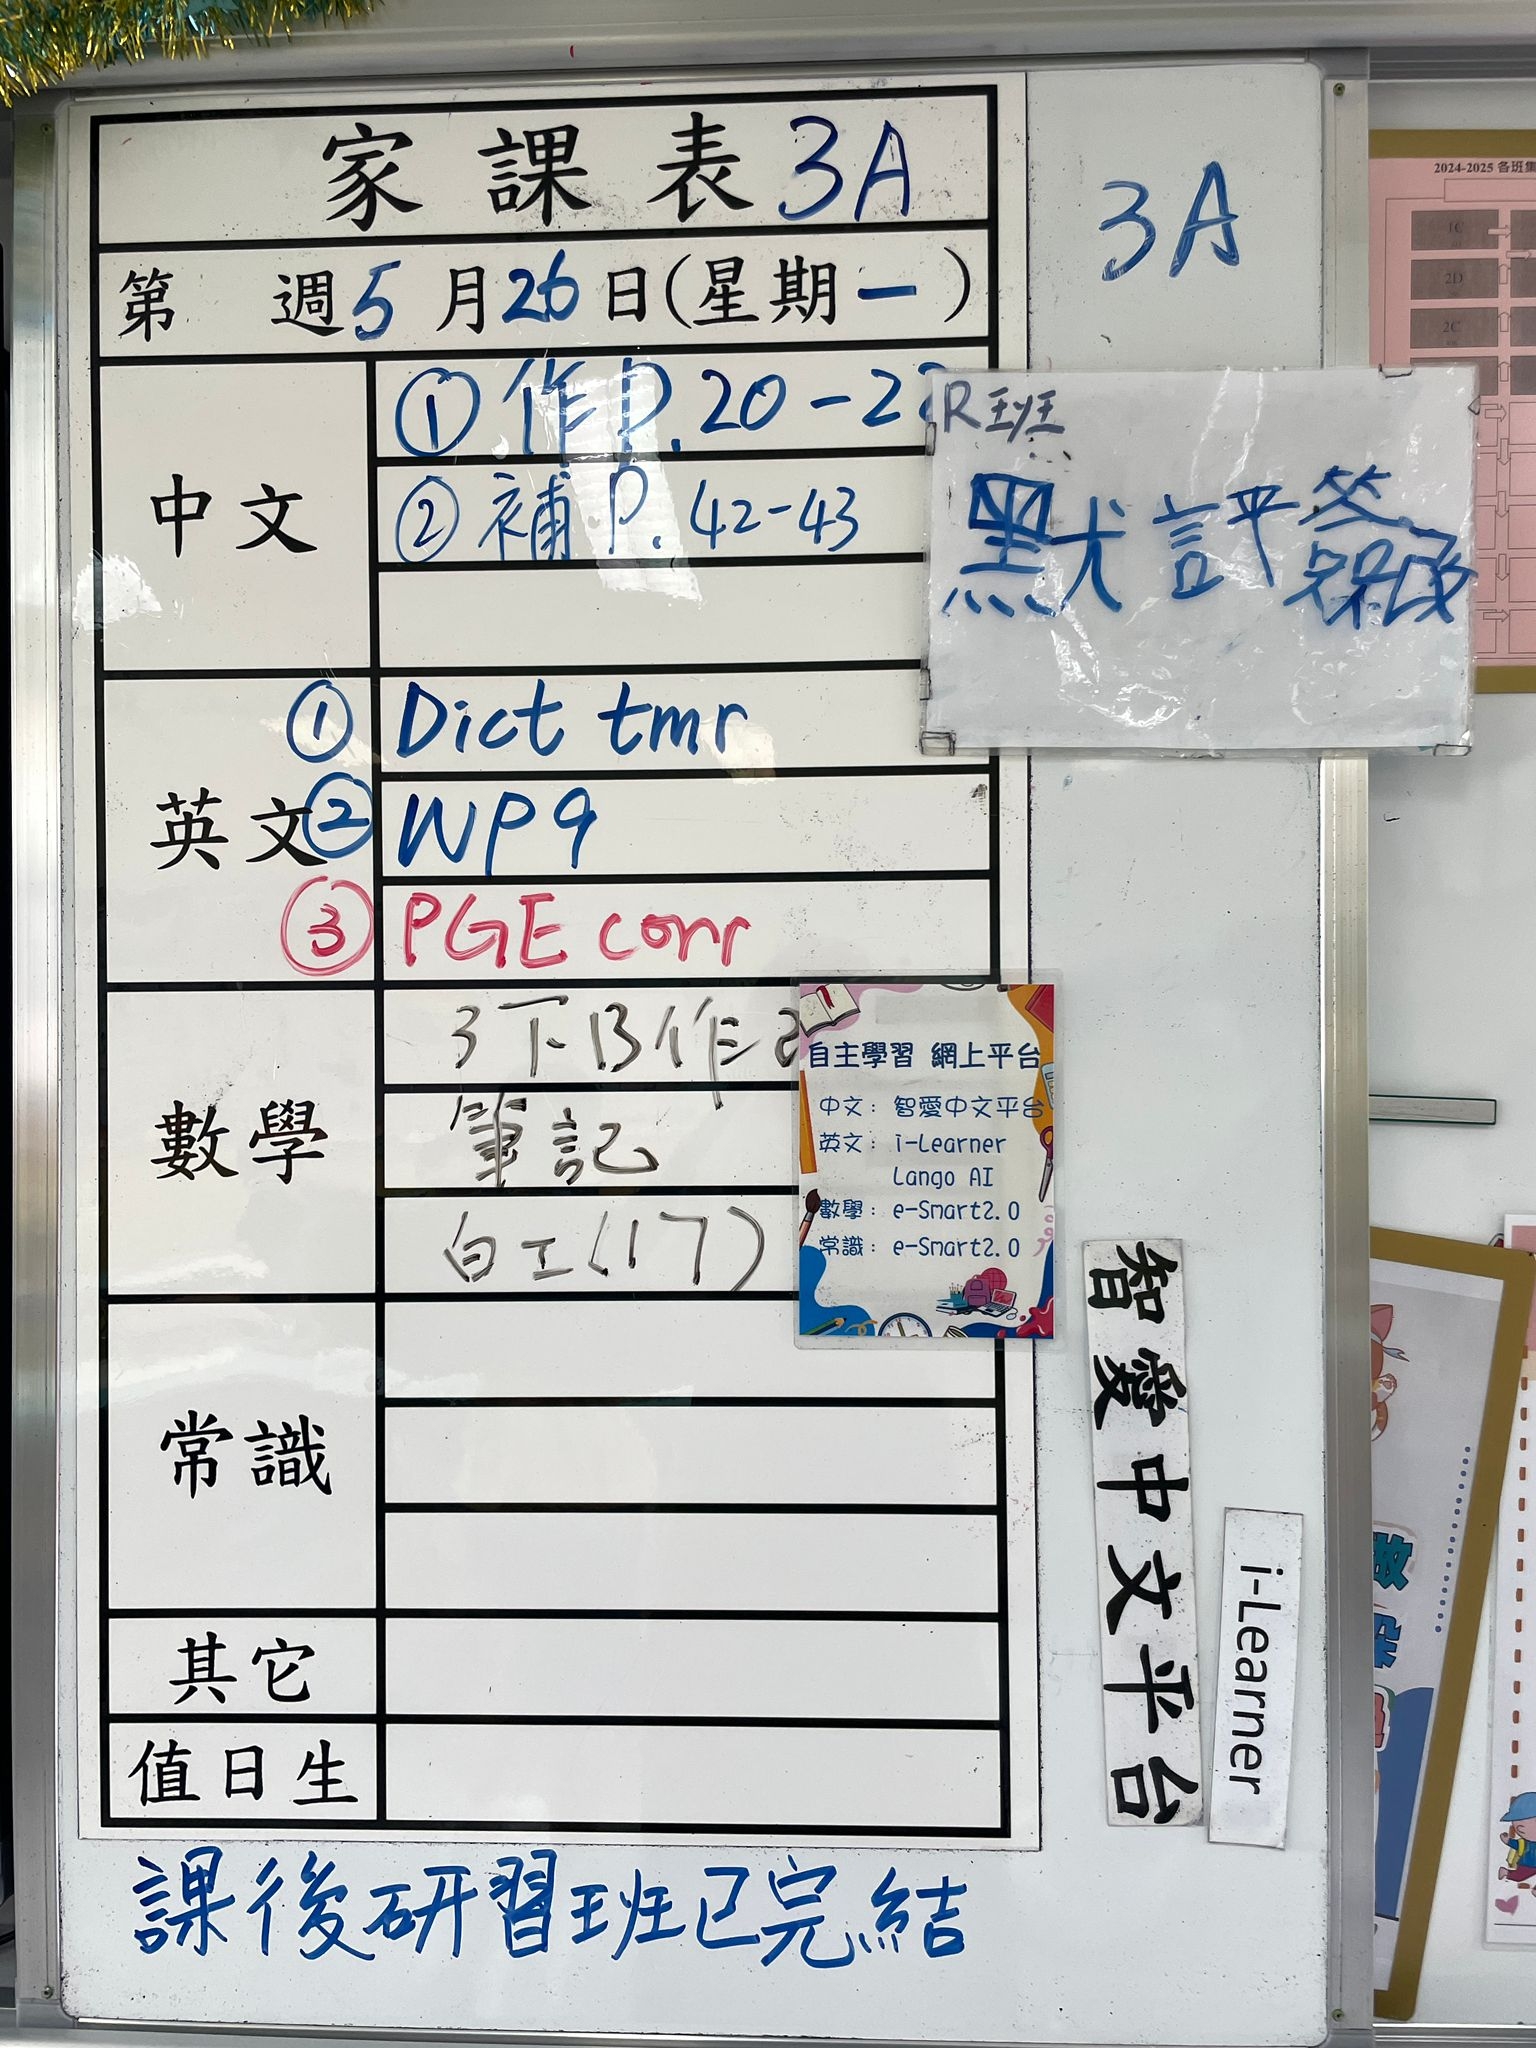 家課表 3A
3A
第 週 5月26日(星期一)
中文
① 作 P.20-2
② 補 P.42-43
R班
默評簽改
英文
① Dict tmr
② WP9
③ PGE corr
數學
3下B作
筆記
白工(17)
自主學習 網上平台
中文：智愛中文平台
英文：i-Learner
Lango AI
數學：e-Smart2.0
常識：e-Smart2.0
常識
其它
值日生
智愛中文平台
i-Learner
課後研習班已完結
2024-2025 各班集
1C
2D
2C